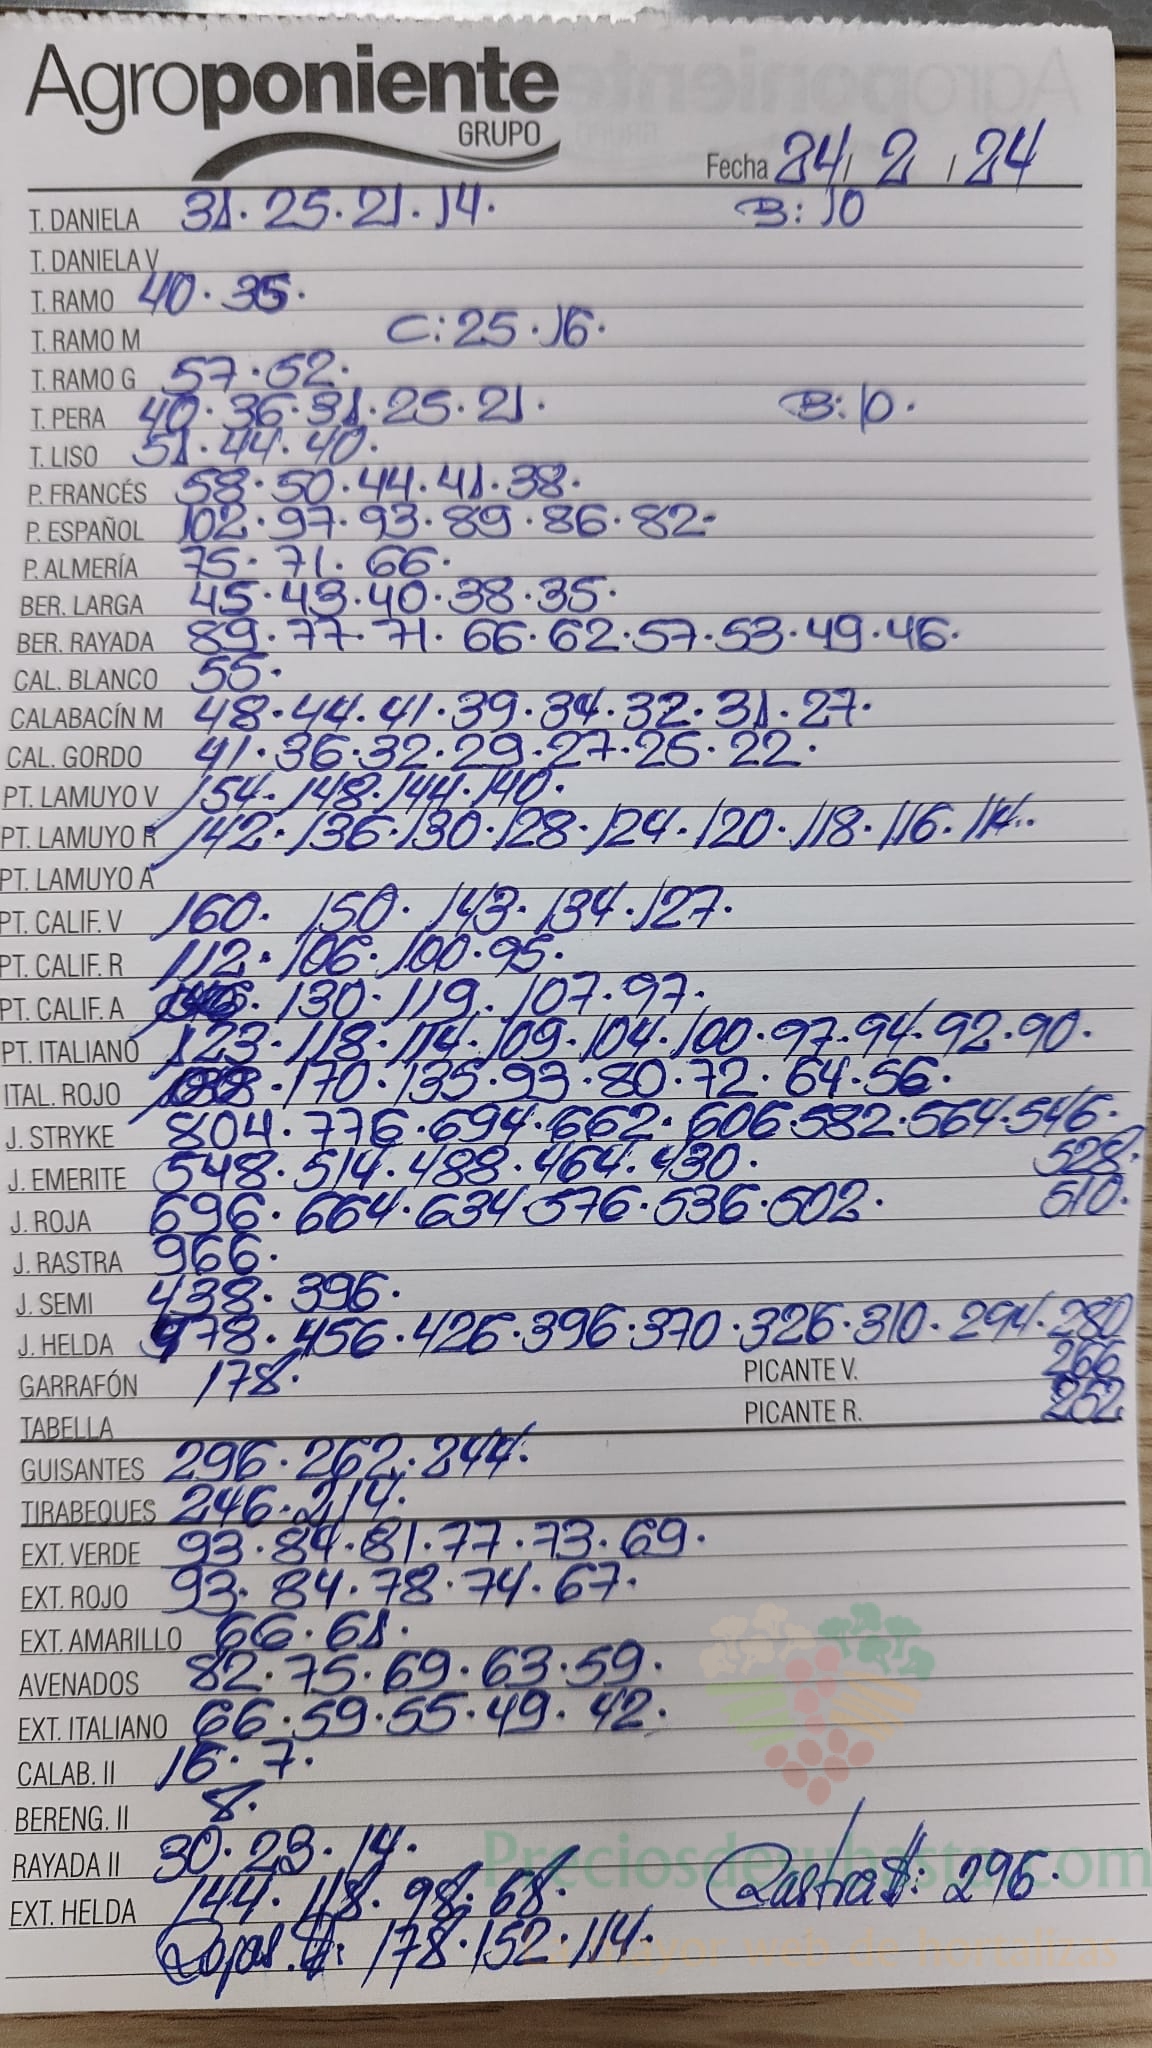 Agroponiente
GRUPO
Fecha 24/ 2 / 24
T. DANIELA 31. 25. 21. 14. B: 10
T. DANIELA V
T. RAMO 40. 35.
T. RAMO M C: 25. 16.
T. RAMO G 57. 52.
T. PERA 40. 36. 31. 25. 21. B: 10.
T. LISO 51. 44. 40.
P. FRANCÉS 58. 50. 44. 41. 38.
P. ESPAÑOL 102. 97. 93. 89. 86. 82.
P. ALMERÍA 75. 71. 66.
BER. LARGA 45. 43. 40. 38. 35.
BER. RAYADA 89. 77. 71. 66. 62. 57. 53. 49. 46.
CAL. BLANCO 55.
CALABACÍN M 48. 44. 41. 39. 34. 32. 31. 27.
CAL. GORDO 41. 36. 32. 29. 27. 25. 22.
PT. LAMUYO V 154. 148. 144. 140.
PT. LAMUYO R 142. 136. 130. 128. 124. 120. 118. 116. 114.
PT. LAMUYO A
PT. CALIF. V 160. 150. 143. 134. 127.
PT. CALIF. R 112. 106. 100. 95.
PT. CALIF. A 130. 119. 107. 97.
PT. ITALIANO 123. 118. 114. 109. 104. 100. 97. 94. 92. 90.
ITAL. ROJO 170. 135. 93. 80. 72. 64. 56.
J. STRYKE 804. 776. 694. 662. 606. 582. 564. 546.
J. EMERITE 548. 514. 488. 464. 430. 528.
J. ROJA 696. 664. 634. 576. 536. 502. 510.
J. RASTRA 966.
J. SEMI 438. 396.
J. HELDA 478. 456. 426. 396. 370. 326. 310. 294. 280
GARRAFÓN 178. PICANTE V. 266
TABELLA PICANTE R. 252
GUISANTES 296. 262. 244.
TIRABEQUES 246. 214.
EXT. VERDE 93. 84. 81. 77. 73. 69.
EXT. ROJO 93. 84. 78. 74. 67.
EXT. AMARILLO 66. 61.
AVENADOS 82. 75. 69. 63. 59.
EXT. ITALIANO 66. 59. 55. 49. 42.
CALAB. II 16. 7.
BERENG. II 8.
RAYADA II 30. 23. 14.
Preciosdesubasta.com
EXT. HELDA 144. 118. 98. 68. Rastra II: 296.
Rojas II: 178. 152. 114.
mayor web de hortalizas